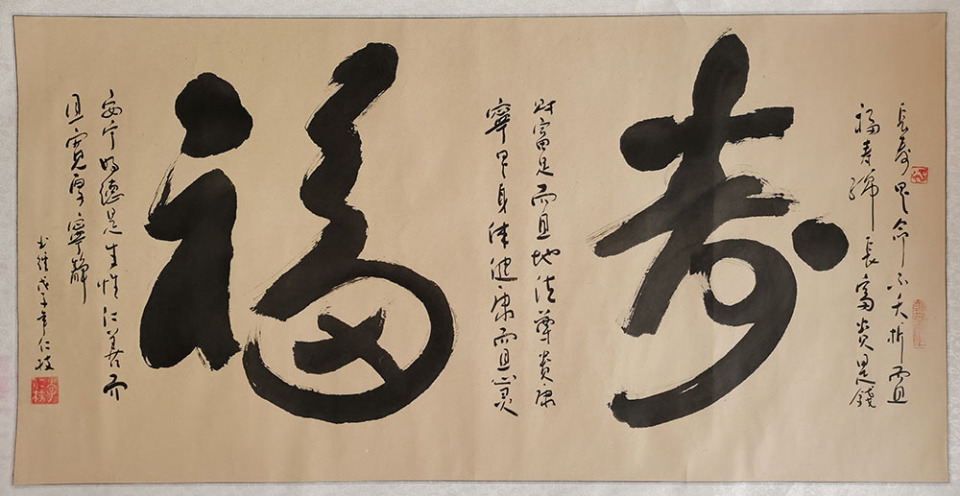 长寿是命不夭折而且
福寿绵长富贵是钱
寿
财富足而且地位尊贵康
寧是身体健康而且心灵
福
安宁好德是生性仁善而
且宽厚寧静
戊子年仁枝